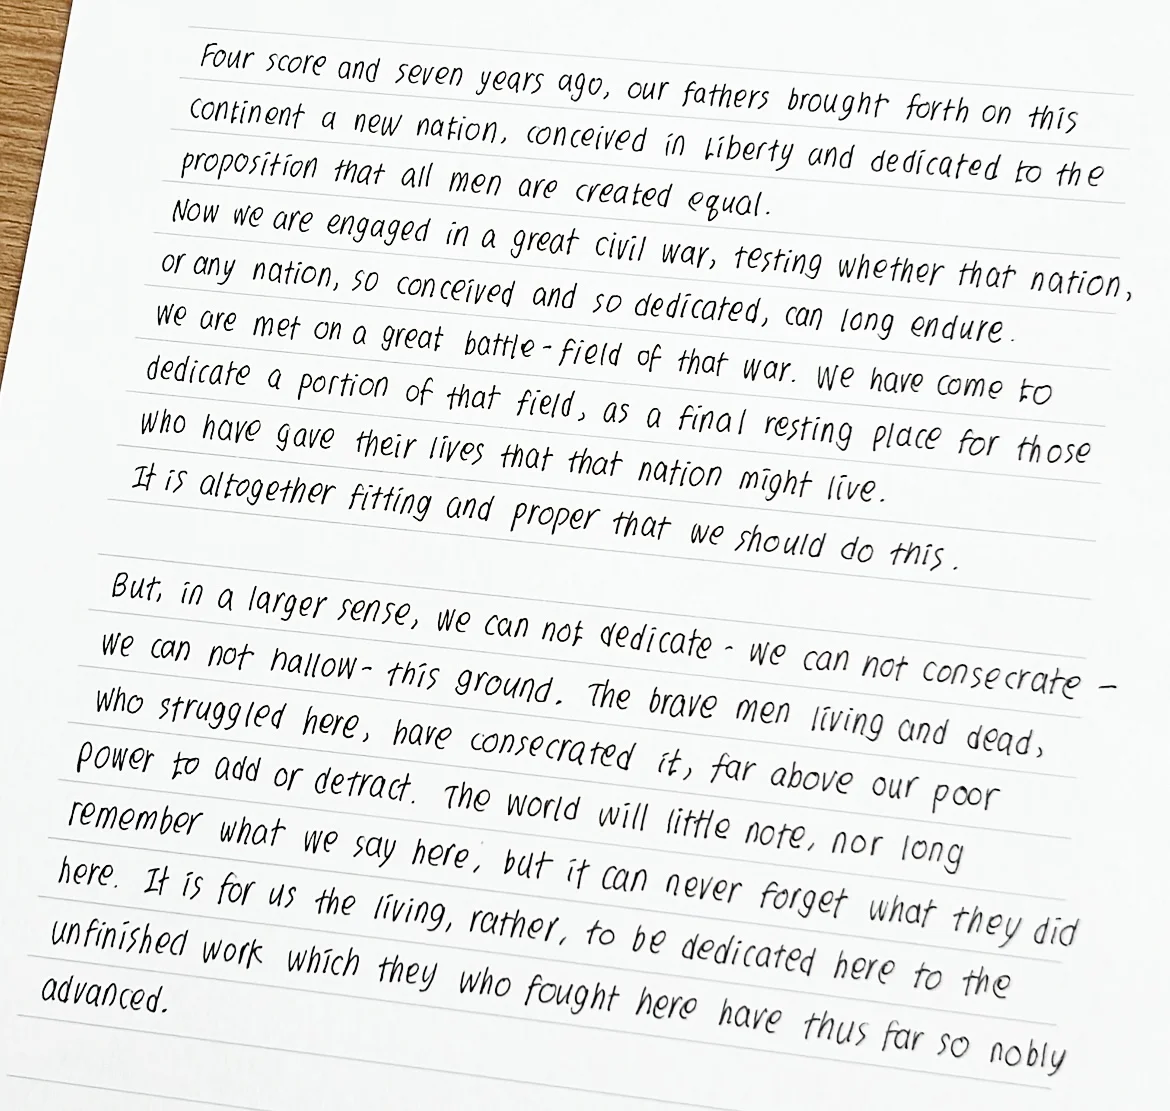 Four score and seven years ago, our fathers brought forth on this
continent a new nation, conceived in Liberty and dedicated to the
proposition that all men are created equal.
Now we are engaged in a great civil war, testing whether that nation,
or any nation, so conceived and so dedicated, can long endure.
We are met on a great battle-field of that war. We have come to
dedicate a portion of that field, as a final resting place for those
who have gave their lives that that nation might live.
It is altogether fitting and proper that we should do this.
But, in a larger sense, we can not dedicate - we can not consecrate -
we can not hallow- this ground. The brave men living and dead,
who struggled here, have consecrated it, far above our poor
power to add or detract. The world will little note, nor long
remember what we say here, but it can never forget what they did
here. It is for us the living, rather, to be dedicated here to the
unfinished work which they who fought here have thus far so nobly
advanced.